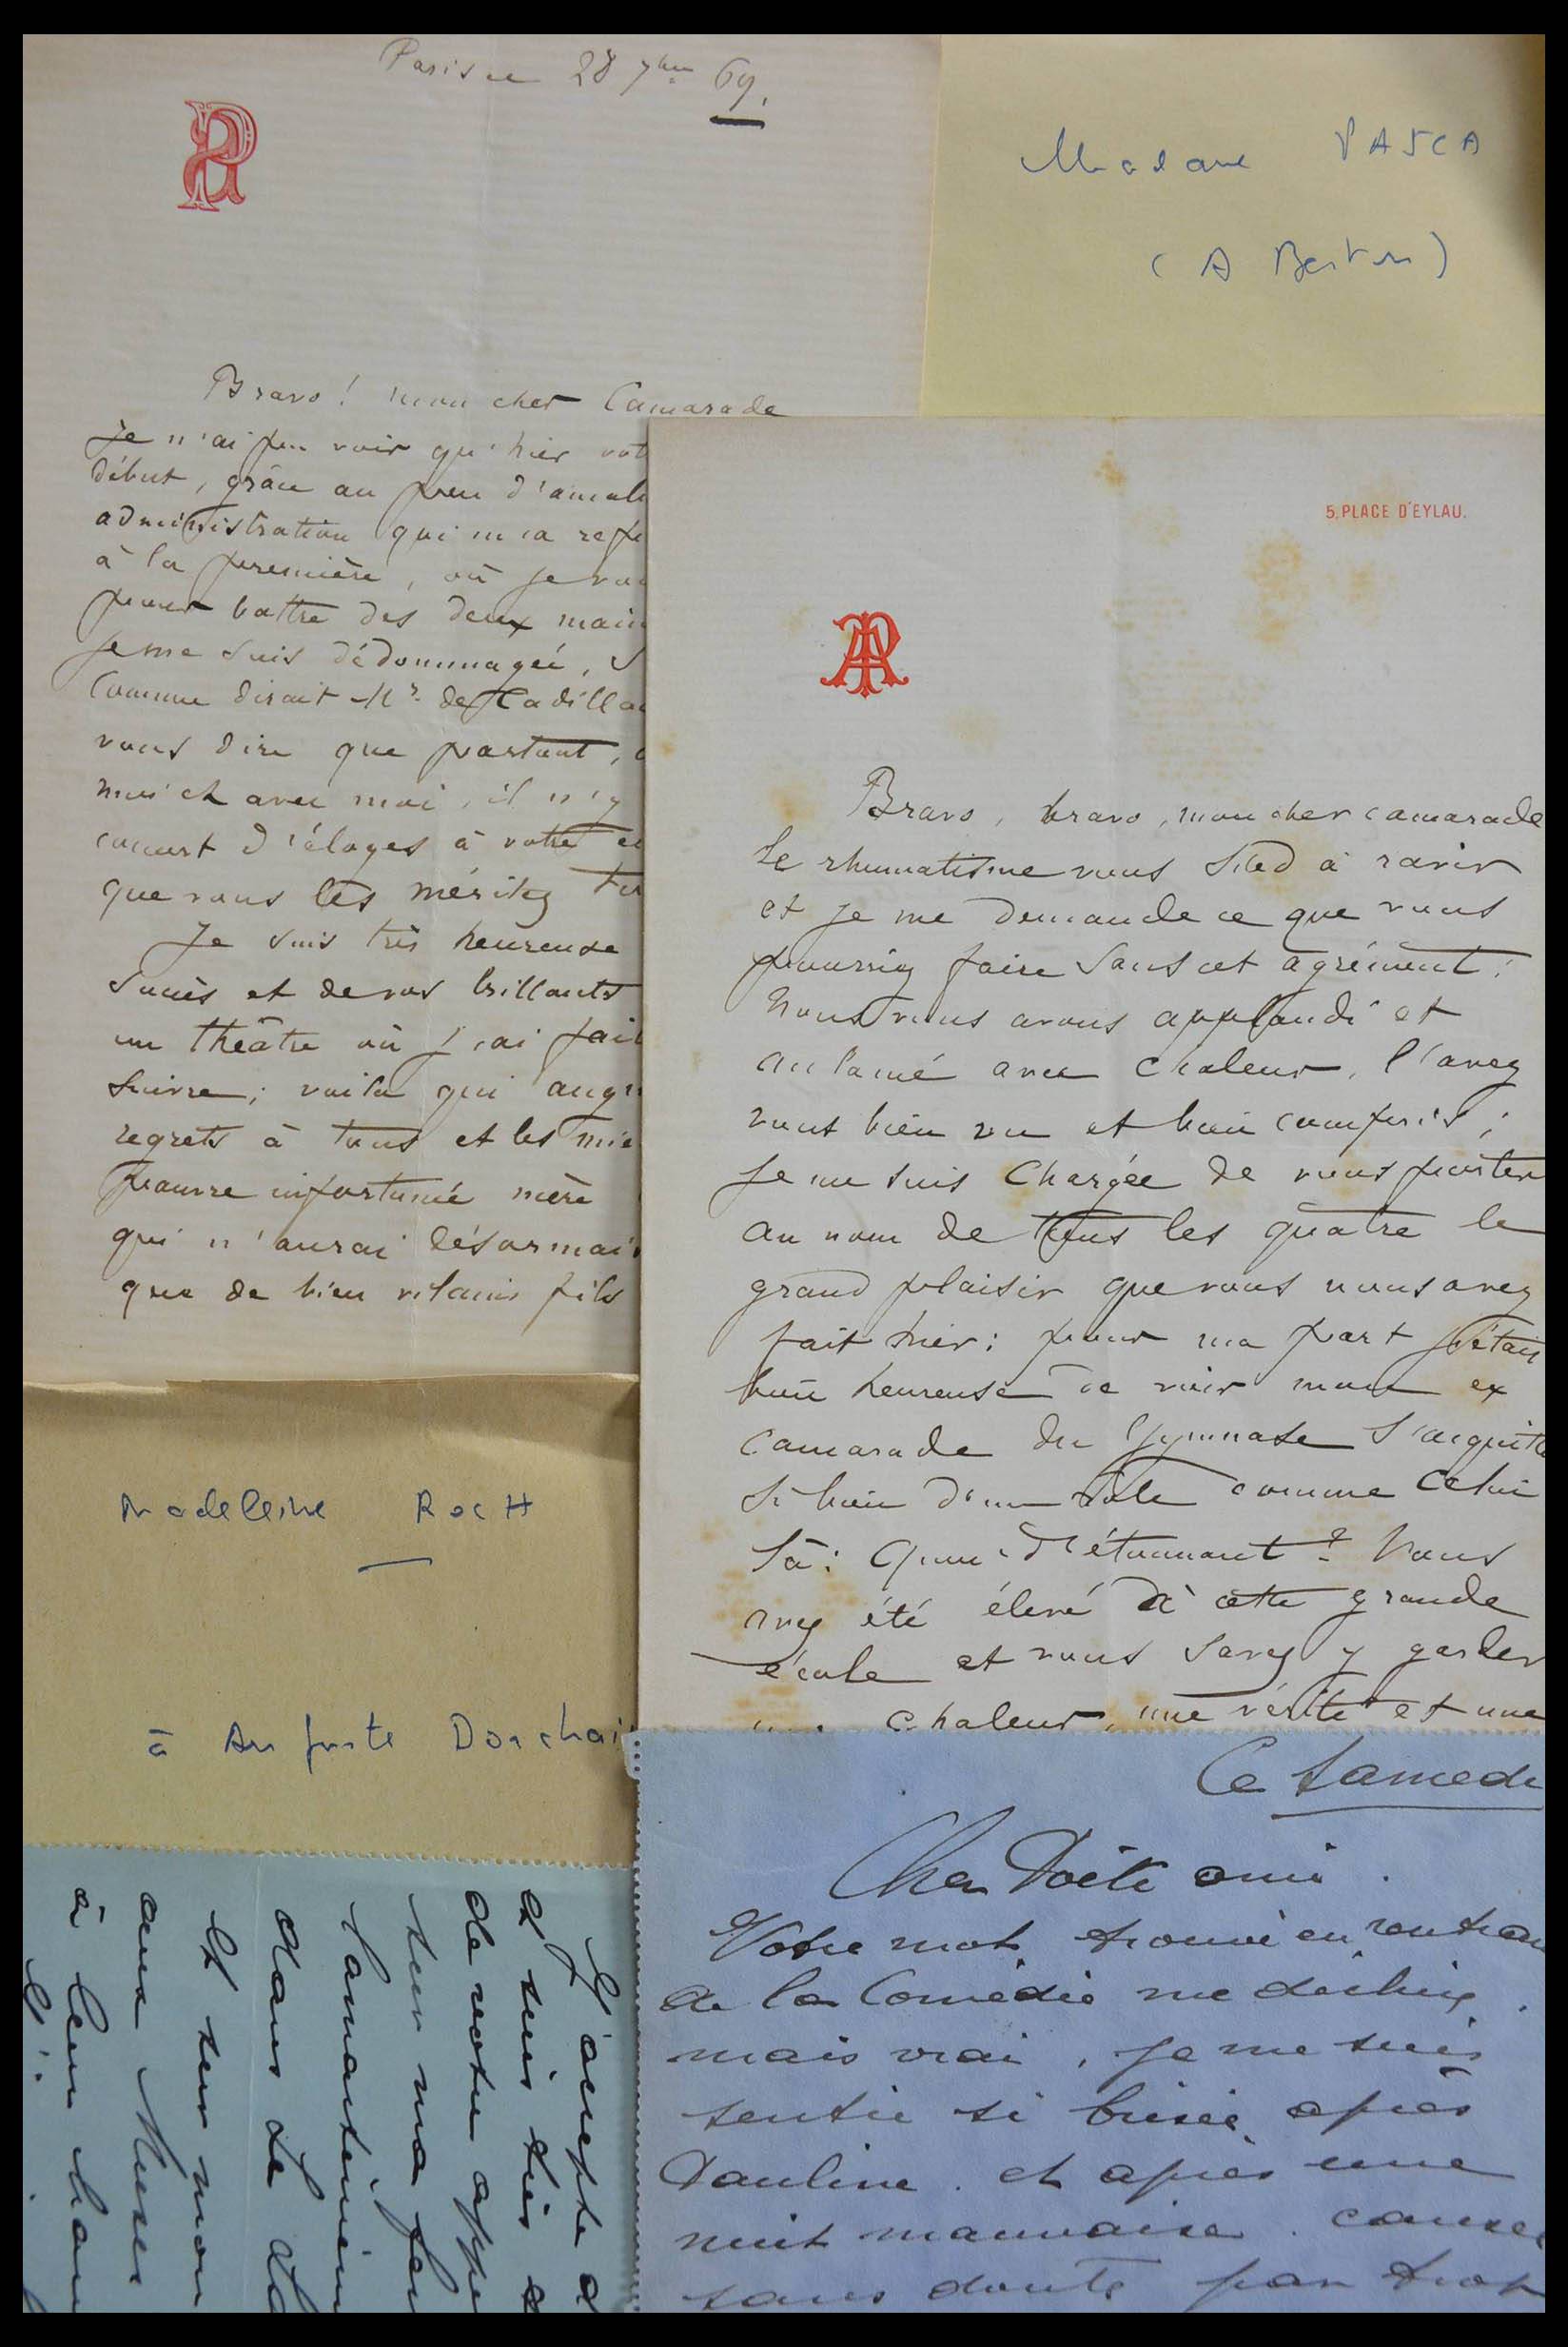 Paris ce 28 7bre 69.
Madame PASCA
(A Berton)
Bravo! mon cher Camarade
Je n'ai pu voir qu'hier vot
début, grâce au peu d'amab
administration qui m'a refu
à la première, où je vou
pour battre des deux main
Je me suis dédommagée, s
Comme dirait Mr. de Cadilla
vous dire que partout,
moi et avec moi, il n'y
concert d'éloges à votre
que vous les méritez
Je suis très heureuse
succès et de vos brillants
un théâtre où j'ai fait
suivre; voilà qui aug
regrets à tous et les mie
pauvre infortunée mère
qui n'aurai désormai
que de bien vilains fils
5, PLACE D'EYLAU.
Bravo, bravo, mon cher camarade
le rhumatisme vous sied à ravir
et je me demande ce que vous
pourriez faire sans cet agrément:
Nous vous avons applaudi et
acclamé avec chaleur, l'avez
vous bien vu et bien compris;
Je me suis chargée de vous porter
au nom de tous les quatre le
grand plaisir que vous nous avez
fait hier: pour ma part j'étais
bien heureuse de voir mon ex
camarade du Gymnase s'acquitte
si bien d'un rôle comme celui
là: Quoi d'étonnant? Vous
avez été élevé à cette grande
école et vous savez y garder
chaleur, une vérité et une
Madeleine RocH
à Auguste Dorchai
J'accepte
et suis très
de votre appe
sur ma
dans le
et sur mon
aux Muses
à leur
Ce Samedi
Cher Poète ami.
Votre mot trouvé en rentran
de la Comédie me
mais vrai, je me suis
sentie si brisée après
Pauline. et après une
nuit mauvaise. causée
sans doute par trop